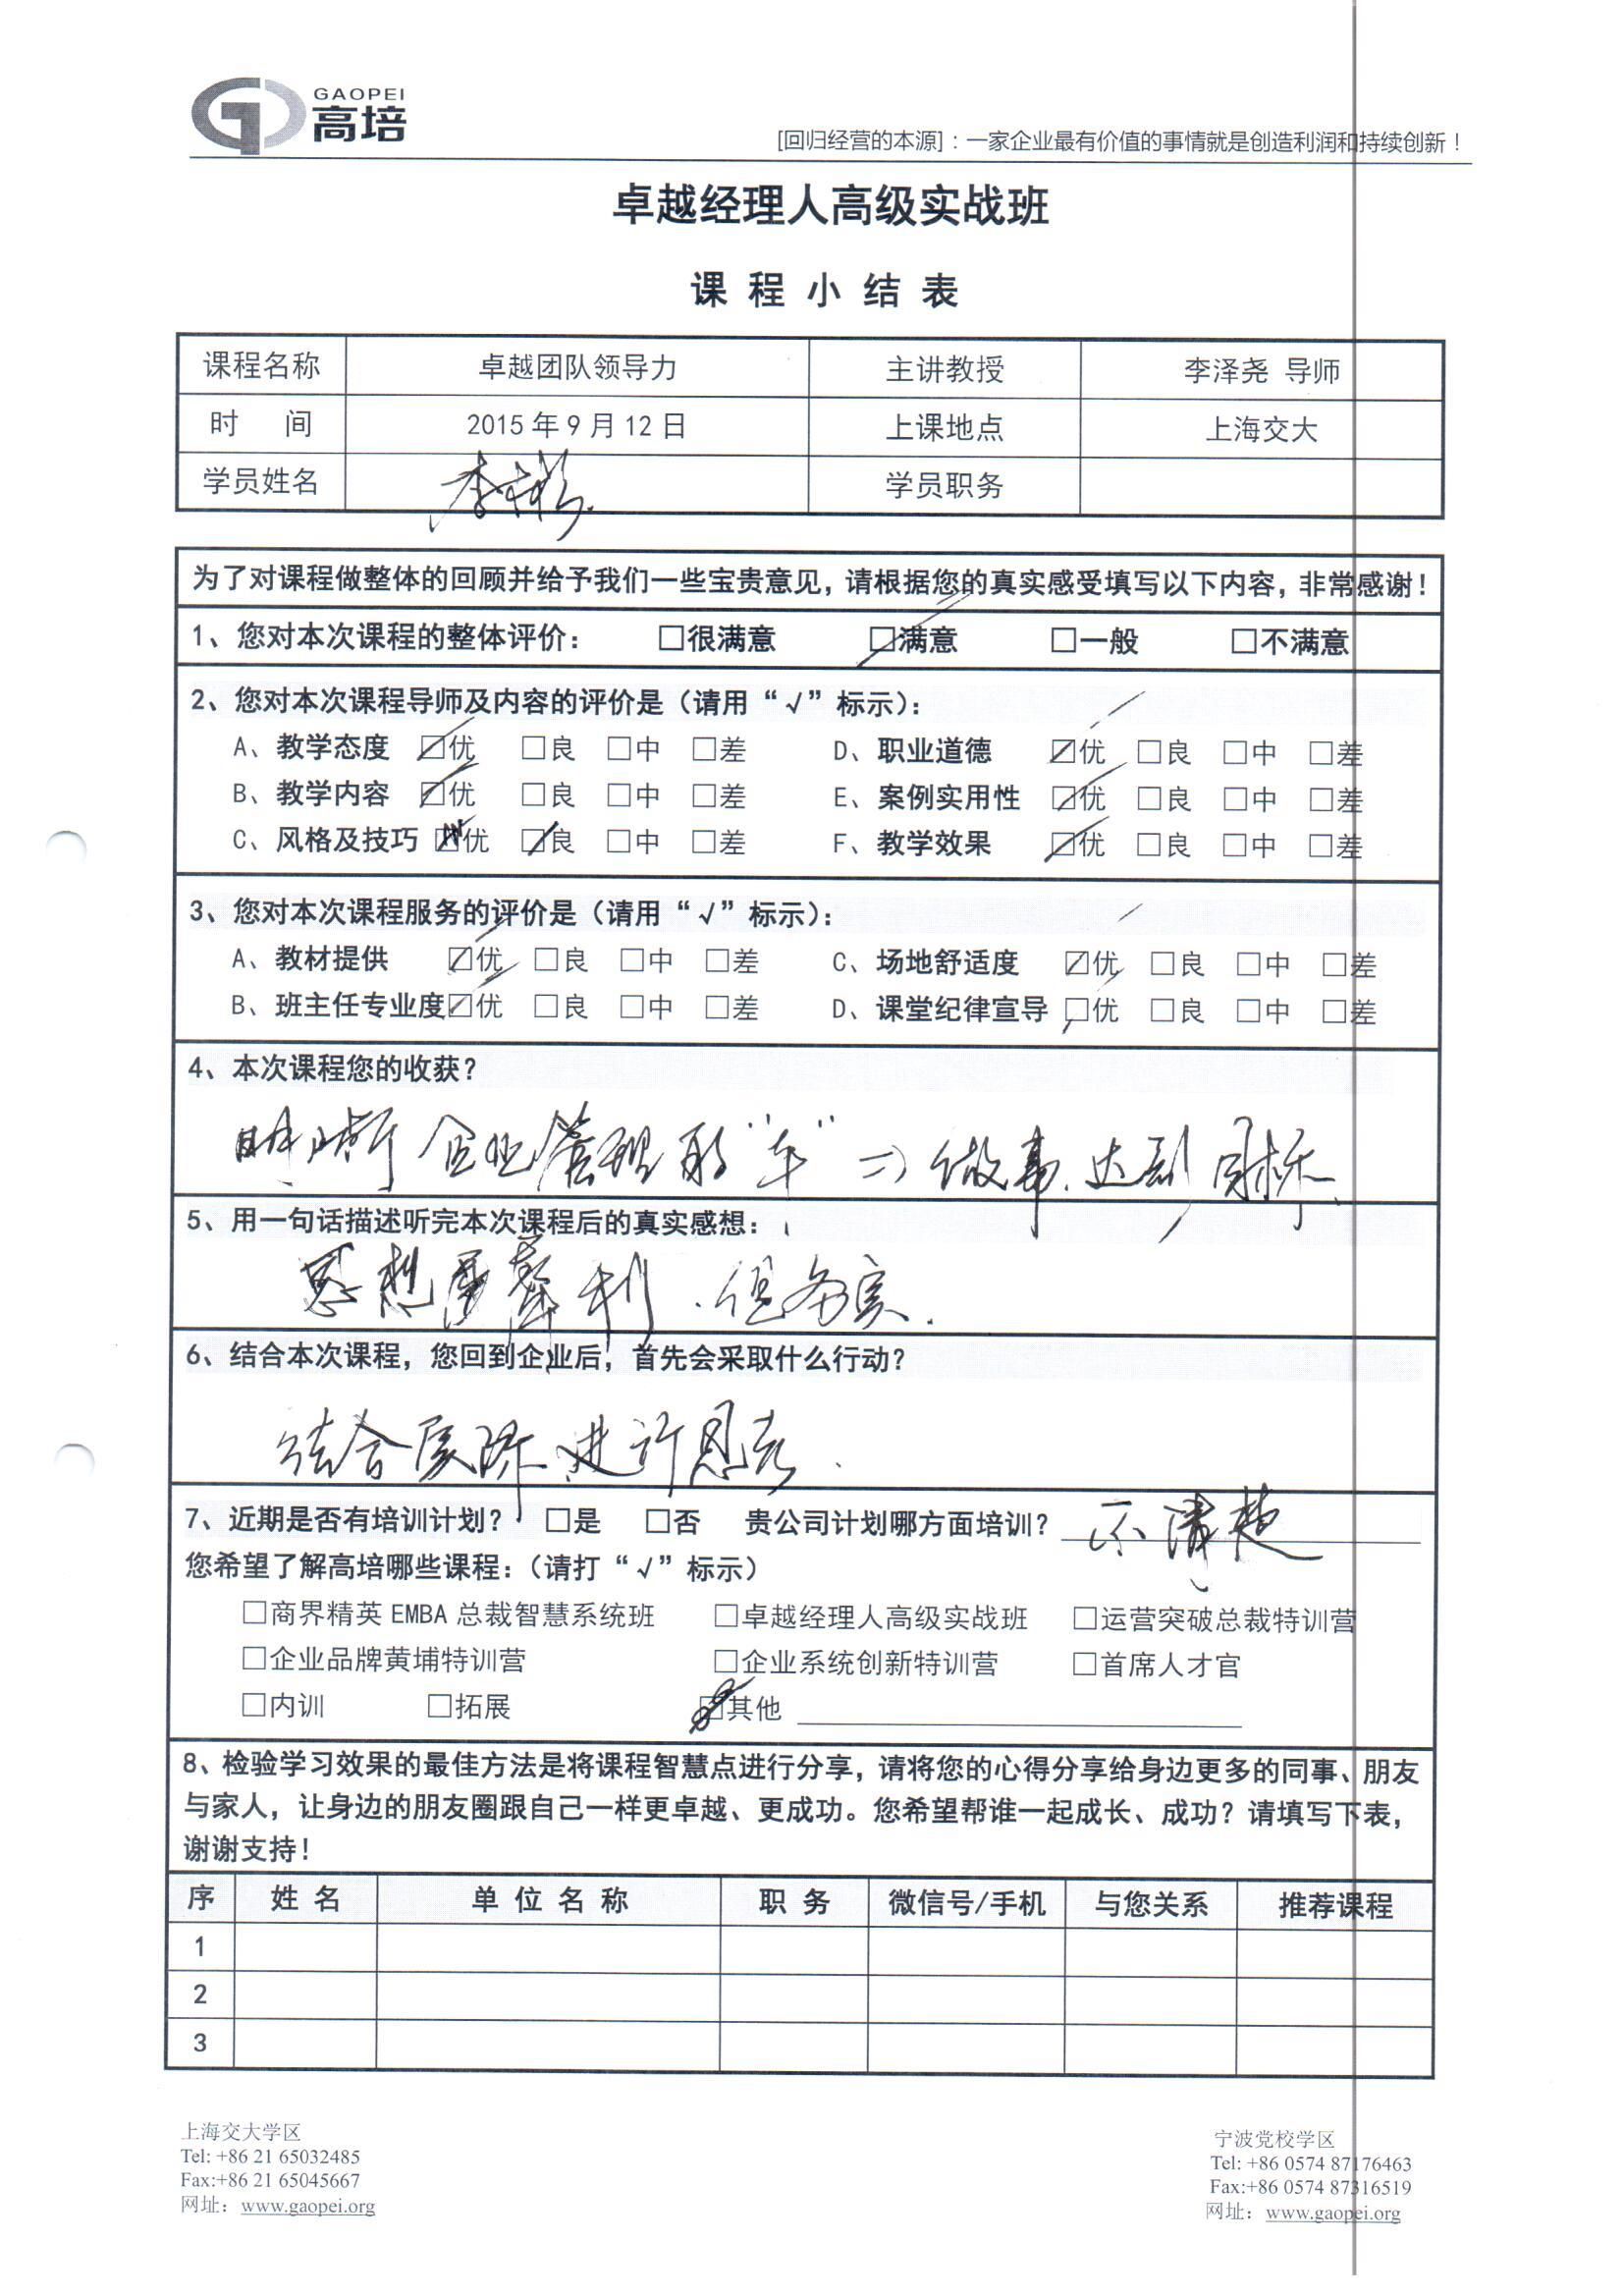 GAOPEI
高培
[回归经营的本源]：一家企业最有价值的事情就是创造利润和持续创新！
卓越经理人高级实战班
课 程 小 结 表
课程名称 卓越团队领导力 主讲教授 李泽尧 导师
时 间 2015年9月12日 上课地点 上海交大
学员姓名 李 彬 学员职务
为了对课程做整体的回顾并给予我们一些宝贵意见，请根据您的真实感受填写以下内容，非常感谢！
1、您对本次课程的整体评价： □很满意 ☑满意 □一般 □不满意
2、您对本次课程导师及内容的评价是（请用“√”标示）：
A、教学态度 ☑优 □良 □中 □差 D、职业道德 ☑优 □良 □中 □差
B、教学内容 ☑优 □良 □中 □差 E、案例实用性 ☑优 □良 □中 □差
C、风格及技巧 □优 ☑良 □中 □差 F、教学效果 ☑优 □良 □中 □差
3、您对本次课程服务的评价是（请用“√”标示）：
A、教材提供 ☑优 □良 □中 □差 C、场地舒适度 ☑优 □良 □中 □差
B、班主任专业度 ☑优 □良 □中 □差 D、课堂纪律宣导 ☑优 □良 □中 □差
4、本次课程您的收获？
明晰企业管理的“车”=>做事、达到目标
5、用一句话描述听完本次课程后的真实感想：
思想犀利、但务实.
6、结合本次课程，您回到企业后，首先会采取什么行动？
结合实际进行思考.
7、近期是否有培训计划？ □是 □否 贵公司计划哪方面培训？ 不清楚
您希望了解高培哪些课程：（请打“√”标示）
□商界精英EMBA总裁智慧系统班 □卓越经理人高级实战班 □运营突破总裁特训营
□企业品牌黄埔特训营 □企业系统创新特训营 □首席人才官
□内训 □拓展 □其他
8、检验学习效果的最佳方法是将课程智慧点进行分享，请将您的心得分享给身边更多的同事、朋友
与家人，让身边的朋友圈跟自己一样更卓越、更成功。您希望帮谁一起成长、成功？请填写下表，
谢谢支持！
序 姓名 单位名称 职务 微信号/手机 与您关系 推荐课程
1
2
3
上海交大学区
Tel: +86 21 65032485
Fax:+86 21 65045667
网址：www.gaopei.org
宁波党校学区
Tel: +86 0574 87176463
Fax:+86 0574 87316519
网址：www.gaopei.org